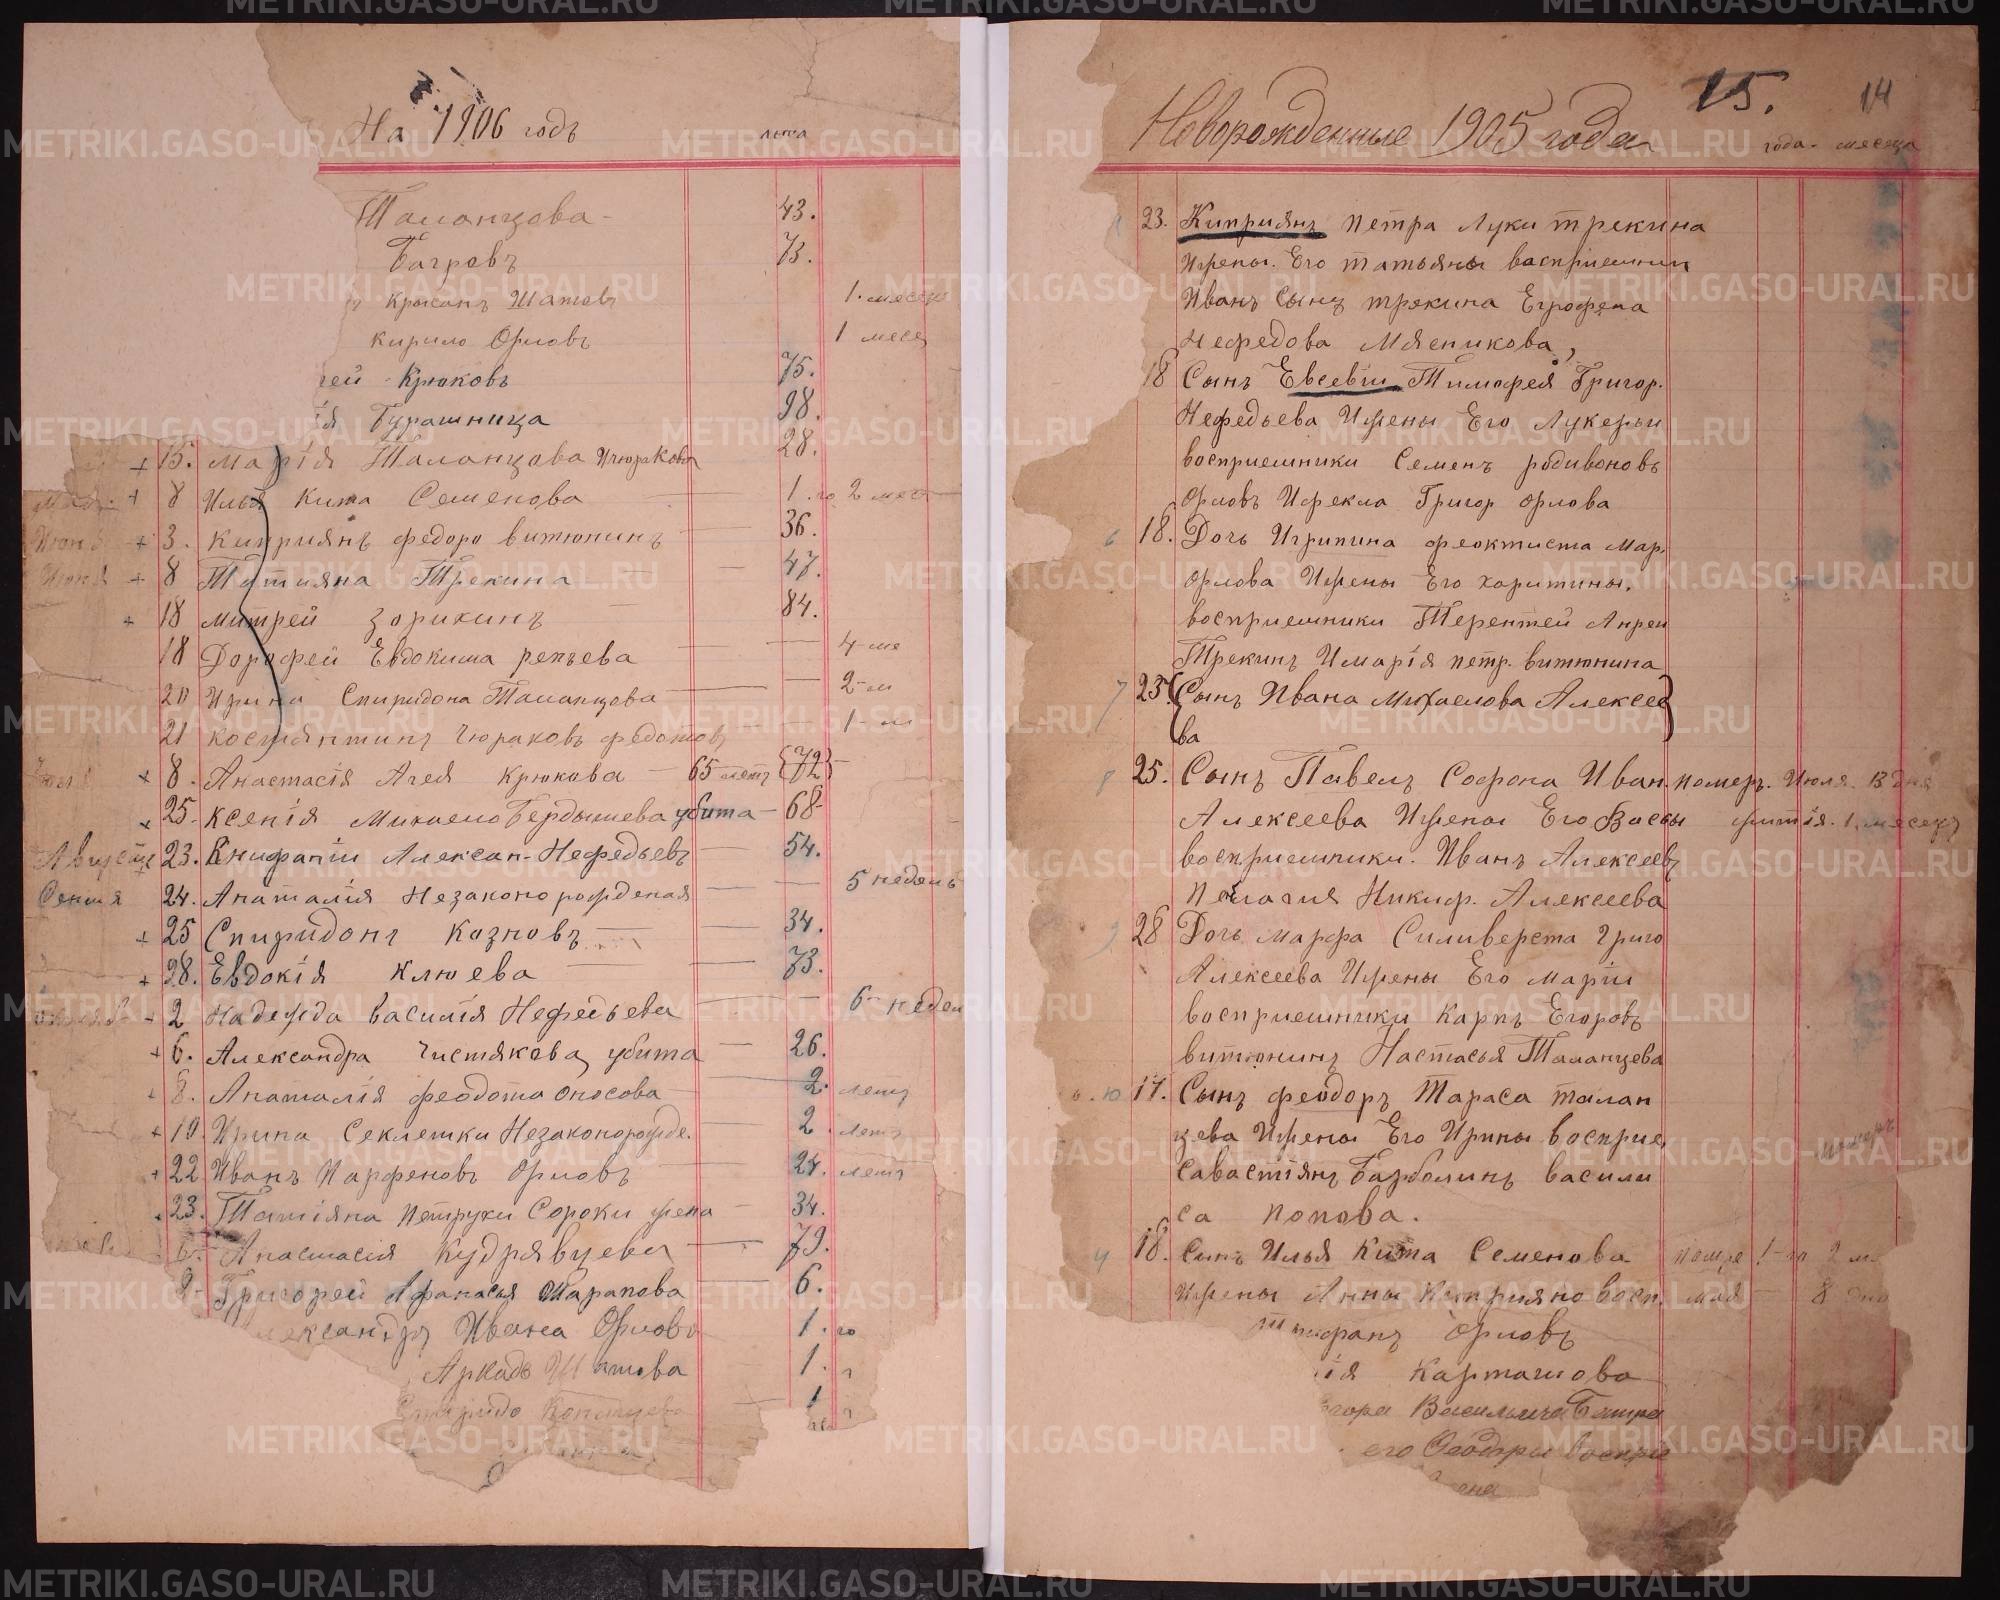 На 1906 годъ лѣта
Таланцова - 43.
Багровъ 73.
Шатовъ 1. месец
кирило Орловъ 1 месе
гей Крюковъ 75.
ія Бурашница 98.
+ 15. Марія Таланцова 28.
+ 8 Илья Кита Семенова 1. го 2 мес
+ 3. Киприянъ федоро витюнинъ 36.
+ 8 Татияна Трекина 47.
+ 18 митрей зорихинъ 84.
18 Дорофей Евдокима репьева 4 ме
20 Ирина Спиридона Таланцова 2 м
21 костянтинъ чюраковъ федотовъ 1 м
+ 8. Анастасія Агея крюкова 65 летъ (72)
+ 25. Ксенія Михаело Бердышева убита 68
+ 23. Алексан. Нефедьевъ 54.
24. Анаталія Незаконорожденая 5 недель
+ 25 Спиридонъ Казновъ 34.
+ 28. Евдокія Клюева 73.
2 Надежда василія Нефедьева 6 недел
+ 6. Александра Чистякова убита 26.
8. Анаталія феодота оносова 2. летъ
+ 19. Ирина Секлетки Незаконорожде. 2. летъ
+ 22 Иванъ Парфеновъ Орловъ 24. летъ
23. Татіяна петрухи Сороки жена 34.
6. Анастасія Кудрявцева 79.
9. Григорей Афанасья Шарапова 6.
лександръ Ивана Орлова 1. го
Аркадь Шатова 1. г
1
Новорожденные 1905 года 15. 14
года. месеца
23. Киприянъ петра Луки трекина
Ижены. Его татьяны васприемники
Иванъ Сынъ трекина
Нефедова Мясникова,
18 Сынъ Евсевіи Тимофея Григор.
Нефедьева Ижены Его Лукерьи
восприемники Семенъ родивоновъ
Орловъ Ифекла Григор орлова
6 18. Дочь Игрипина феоктиста Мар.
орлова Ижены Его харитины.
восприемники Терентей Анреи
Трекинъ Имарія петр. витюнина
7 25. (Сынъ Ивана Михаелова Алексее
ва)
8 25. Сынъ Павелъ Софона Иван. помер. Июля. 13 дня
Алексеева Ижены Его Васы житія. 1. месецъ
восприемники. Иванъ Алексеевъ
Пелагия Никиф. Алексеева
9. 28 Дочь марфа Силиверста Григо
Алексеева Ижены Его маріи
восприемники Карпъ Егоровъ
витюнинъ Настасья Таланцева
ю 17. Сынъ феодоръ Тараса талан
цева Ижены Его Ирины восприе.
савастіянъ васили
са попова.
4 18. Сынъ Илья Кита Семенова помре 1 го 2 м.
Ижены Анны Киприяно восп. мая 8 дня
орловъ
ія Карташова
гора Васильича
его восприе
METRIKI.GASO-URAL.RU